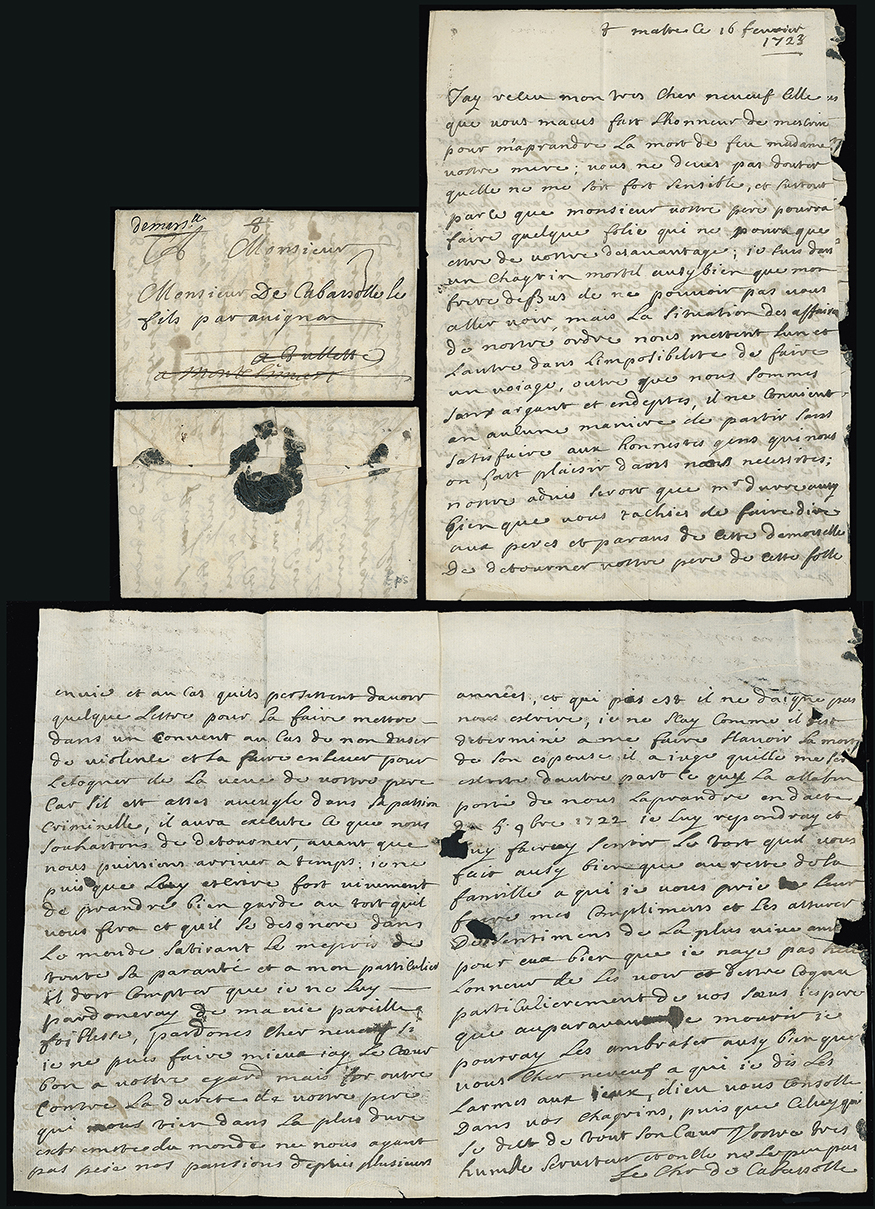 demars.lle
Monsieur
Monsieur De Cabassolle le
fils par avignon
a Montelimart
ps
malte ce 16 fevrier
1723
Jay releu mon tres cher neveuf celle
que vous maves fait Lhonneur de mescrire
pour m'aprandre La mort de feu madame
vostre mere; vous ne deves pas douter
quelle ne me soit fort sensible, et surtout
parce que monsieur vostre pere pourra
faire quelque folie qui ne poura que
estre de vostre desavantage; je suis dans
un chagrin mortel ausy bien que mon
frere dessus de ne pouvoir pas vous
aller voir mais La situation des affaires
de nostre ordre nous mettent lun et
Lautre dans Limposibilite de faire
un voiage, outre que nous sommes
sans argant et endeptes, il ne convient
en aucune maniere de partir sans
satisfaire aux honnestes gens qui nous
on fait plaisir dans nos necessites;
nostre advis seroit que mr durre ausy
bien que vous tachies de faire dire
aux peres et parans de cette demoiselle
De detourner vostre pere de cette folle
envie et au cas quils persistent davoir
quelque Lettre pour La faire mettre
dans un convent au cas de non duser
de violence et La faire enlever pour
Leloigner de La veue de vostre pere
Car sil est asses aveugle dans sa passion
Criminelle, il aura execute ce que nous
souhaitons de detourner, avant que
nous puissions arriver a temps; je ne
puis que Luy escrire fort vivement
de prandre bien garde au tort quil
vous fera et quil se desonore dans
Le monde satirant Le mepris de
toute sa paranté et a mon particulier
il doit Compter que je ne Luy
pardoneray de ma vie pareille
foiblesse, pardones cher neveuf si
je ne puis faire mieux jay Le Coeur
bon a vostre egard mais outre
Contre La dureté de vostre pere
qui nous tien dans La plus dure
extremite du monde ne nous ayant
pas peié nos pansions depuis plusieurs
années, et qui pis est il ne daigne pas
nous escrire, je ne scay Comme il sest
determiné a me faire scavoir La mort
de son espouse il a juge quille me
escrite dautre part ce
porté de nous Laprandre en date
du 5 9bre 1722 je Luy repondray et
Luy fairay sentir Le tort quil vous
fait ausy bien que au reste de la
famille a qui je vous prie de Leur
faire mes Compliments et Les assurer
Des sentimens de La plus vive
pour eux bien que je naye pas heu
Lonneur de Les voir et destre Cognu
particulierement de vos soeurs jespere
que auparavant de mourir je
pourray Les ambrasser ausy bien que
vous cher neveuf a qui je dis Les
Larmes aux jeux, dieu vous Consolle
Dans vos chagrins, puis que Celuy qui
se dit de tout son Coeur Vostre tres
humble serviteur et oncle ne Le peu pas
Le Chr de Cabassolle